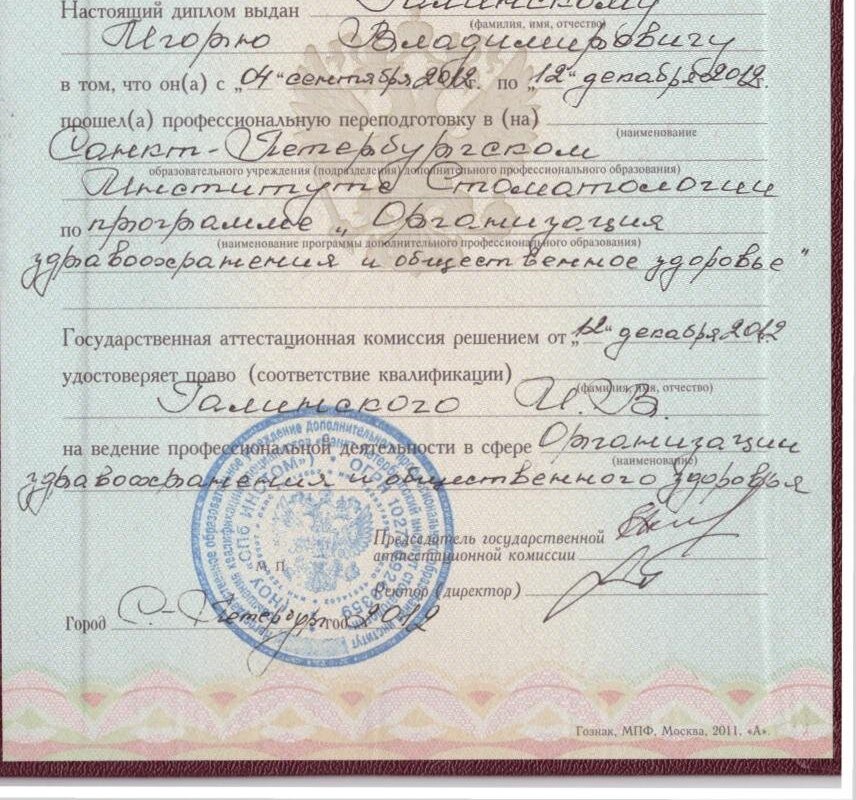 Настоящий диплом выдан Галинскому
(фамилия, имя, отчество)
Игорю Владимировичу
в том, что он(а) с „04" сентября 2012г. по „12" декабря 2012г.
прошел(а) профессиональную переподготовку в (на)
(наименование
Санкт-Петербургском
образовательного учреждения (подразделения) дополнительного профессионального образования)
Институте Стоматологии
по программе „Организация
(наименование программы дополнительного профессионального образования)
здравоохранения и общественное здоровье"
Государственная аттестационная комиссия решением от „12" декабря 2012г.
удостоверяет право (соответствие квалификации)
(фамилия, имя, отчество)
Галинского И.В.
на ведение профессиональной деятельности в сфере Организации
(наименование)
здравоохранения и общественного здоровья
Председатель государственной
аттестационной комиссии
М. П.
Ректор (директор)
Город С.-Петербург год 2012
Гознак, МПФ, Москва, 2011, «А».